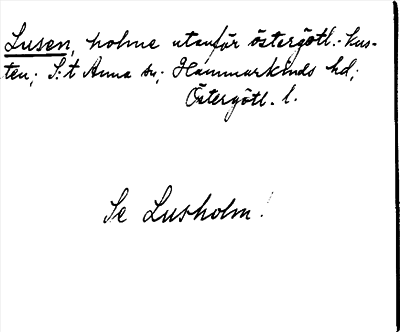 Lusen, holme utanför östergötl.-kus-
ten; S:t Anna sn; Hammarkinds hd;
Östergötl. l.
Se Lusholm!